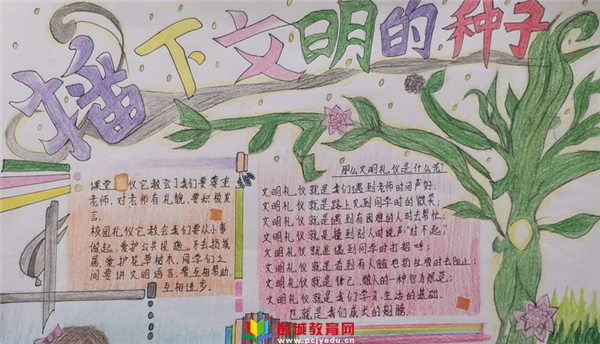 播下文明的种子
课堂礼仪它教会了我们要尊重
老师,对老师有礼貌,要积极发
言。
校园礼仪它教会我们要从小事
做起,爱护公共设施,不去损坏
属,爱护花草树木,同学们之
间要讲文明语言,要互相帮助,
互相进步。
那么文明礼仪是什么呢?
文明礼仪就是我们遇到老师时问声好;
文明礼仪就是路上见到同学时的微笑;
文明礼仪就是遇到有困难的人时去帮忙;
文明礼仪就是撞到别人时说声“对不起”;
文明礼仪就是遇到同学时打招呼;
文明礼仪就是看到有人随地扔垃圾时去阻止;
文明礼仪就是律己、敬人的一种行为规范;
文明礼仪就是我们学习、生活的基础,
也就是我们成长的翅膀
鹏城教育网
www.pcjyedu.cn